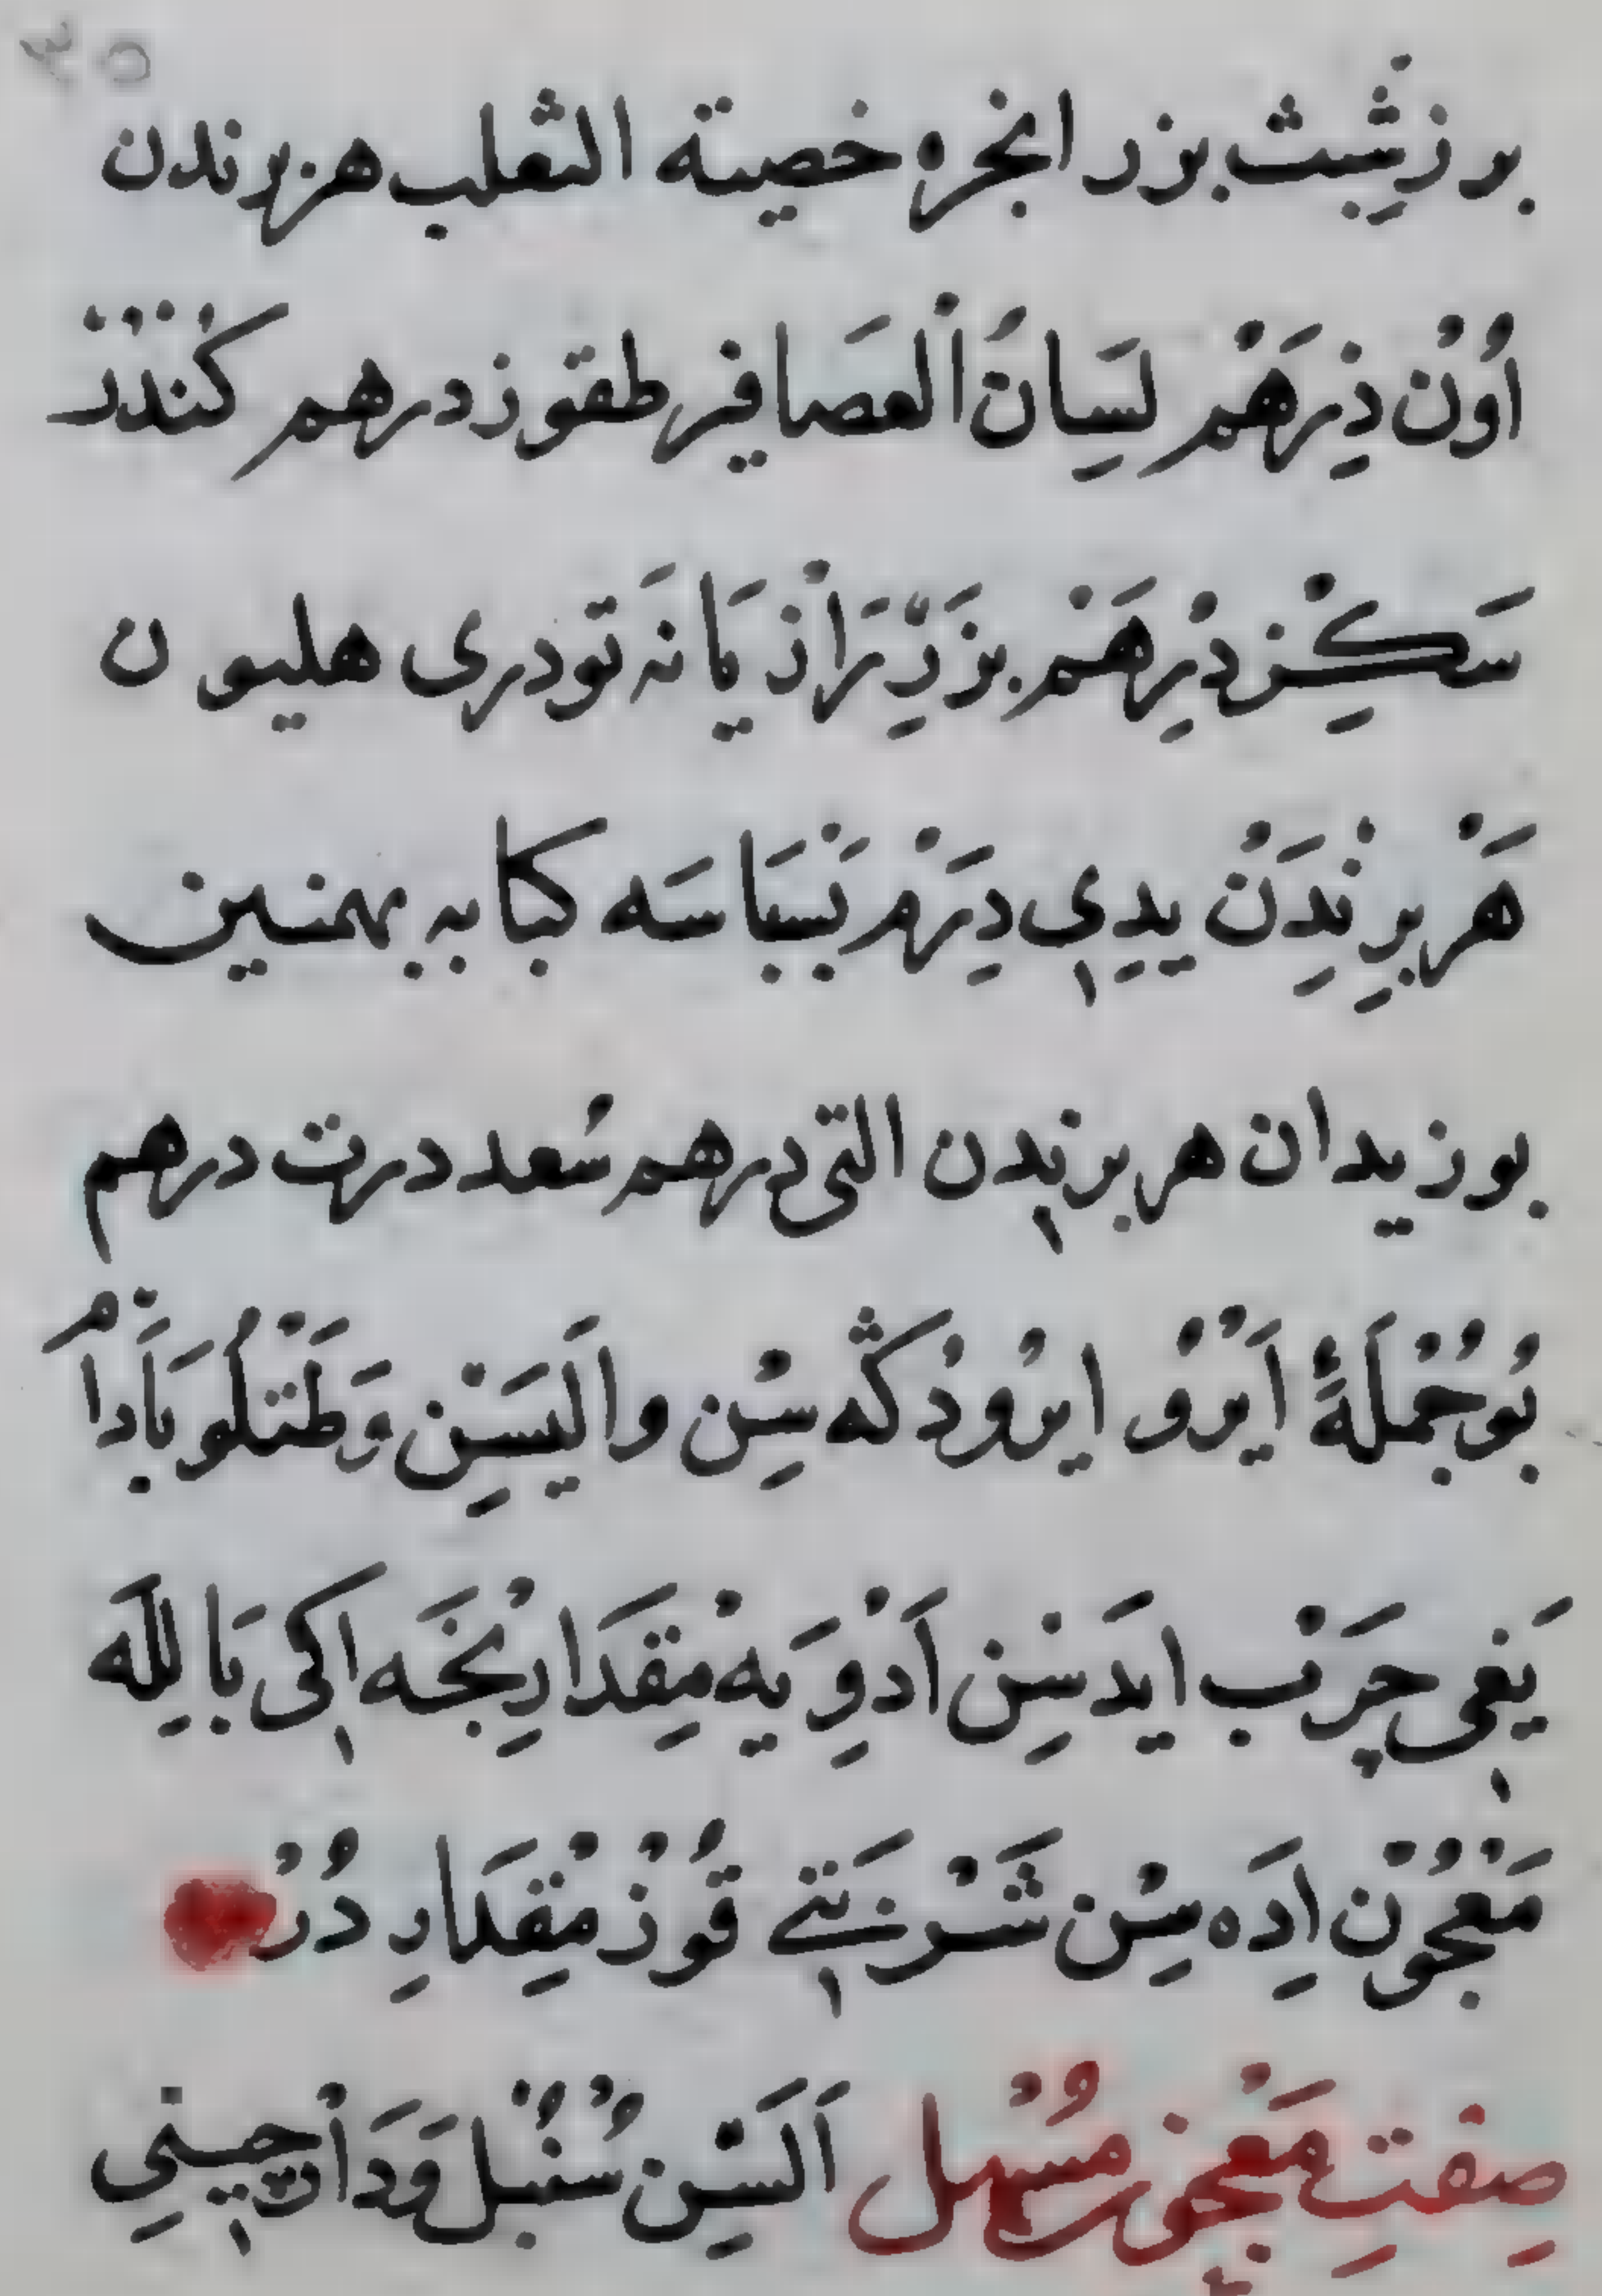 ٣٥
بر زشِبِث بزر انجره خصيتة الثعلب هز برندن
اُوُنْ دِرَهْم لِسَانُ اْلعَصَافير طقوز درهم كُنْدُرْ
سَكِزْ دِرْهَمْ بزَرِّ رَاْزيَانَه تودرى هليون
هَرْ برِنْدَنْ يدِى دِرَمْ بَسْبَاسَه كبابه بهمنين
بوزيدان هر برندن التى درهم سُعد درت درهم
بُوجُمْلَهُ اَيْرُو ايرُوذُكَه سِنْ واَليَسِنْ وَطَتْلُو بَاَدَامُ
يَغِى چَرْب ايدَسِن اَدْوِيَهْ مِقدَارِنْجَه اكى بَاليله
مَعْجُوُنْ اِدَه سِنْ شَرْبَتى قُوُزْ مِقْدَارِ دُرْ
صِفتِ مَعْجُون مُسْهل اَلَسِنْ سُنْبُل وَدَاْرچِينِي